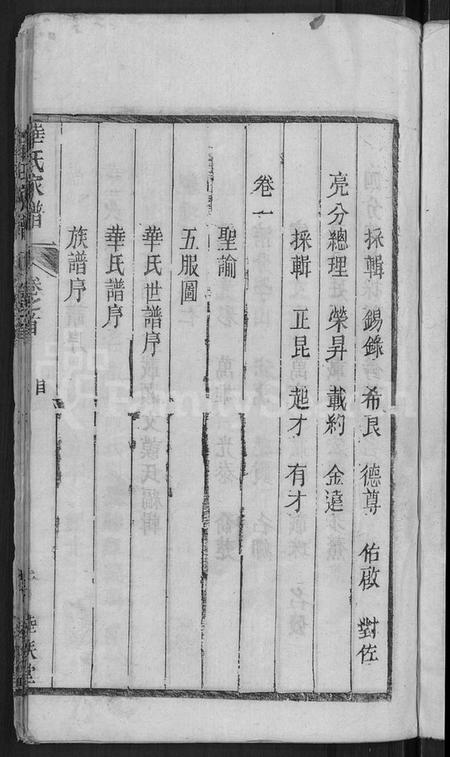 採輯 錫錄 希良 德尊 佑啟 對佐
亮分總理 榮昇 載約 金達
採輯 正昆 起才 有才
卷一
聖諭
五服圖
華氏世譜序
華氏譜序
族譜序
華氏家譜 卷之首 目